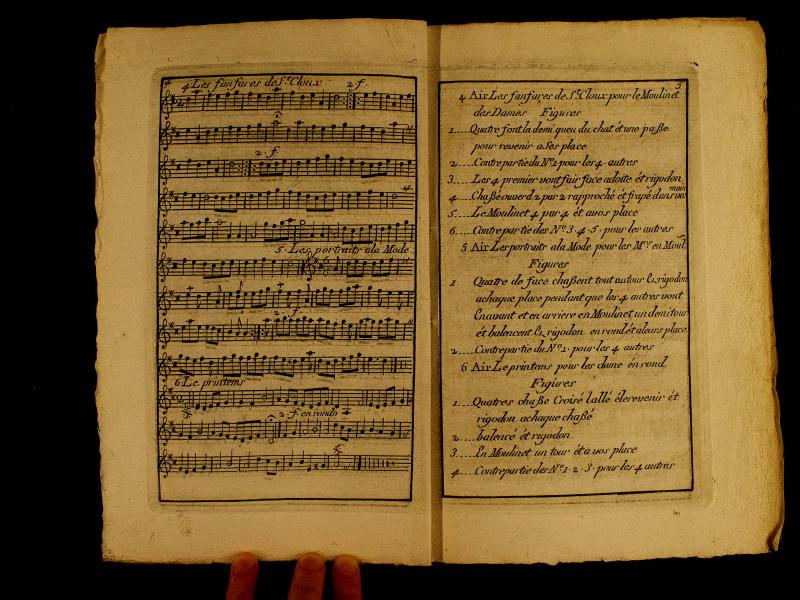 4 Les fanfares de St. Cloux 2 f.
2. f
5. Les portraits ala Mode
2. f
6 Le printems
2. f en rondo
5
4 Air Les fanfares de St. Cloux pour le Moulinet
des Dames Figures
1.... Quatre font la demi queu du chat ét une paße
pour revenir a Ses place
2.... Contrepartie du No. 1. pour les 4. autres
3.... Les 4 premier vont fair face adoite ét rigodon
4.... Chaße ouverd 2 par 2 rapproché ét frapé dans vos
main
5.... Le Moulinet 4 par 4 ét avos place
6.... Contrepartie des No. 3. 4. 5. pour les autres
5 Air Les portraits ala Mode pour les Mrs. en Moul.
Figures
1 Quatre de face chaßent tout autour & rigodon
achaque place pendant que les 4 autres vont
Enavant et en arriere en Moulinet un demi tour
ét balencent & rigodon en rond ét aleurs place.
2.... Contrepartie du No. 1. pour les 4 autres
6 Air Le printems pour les dame en rond
Figures
1.... Quatres chaße Croisé lallé éle revenir ét
rigodon achaque chaßé
2.... balencé ét rigodon
3.... En Moulinet un tour ét a vos place
4.... Contrepartie des No. 1. 2. 3. pour les 4 autres